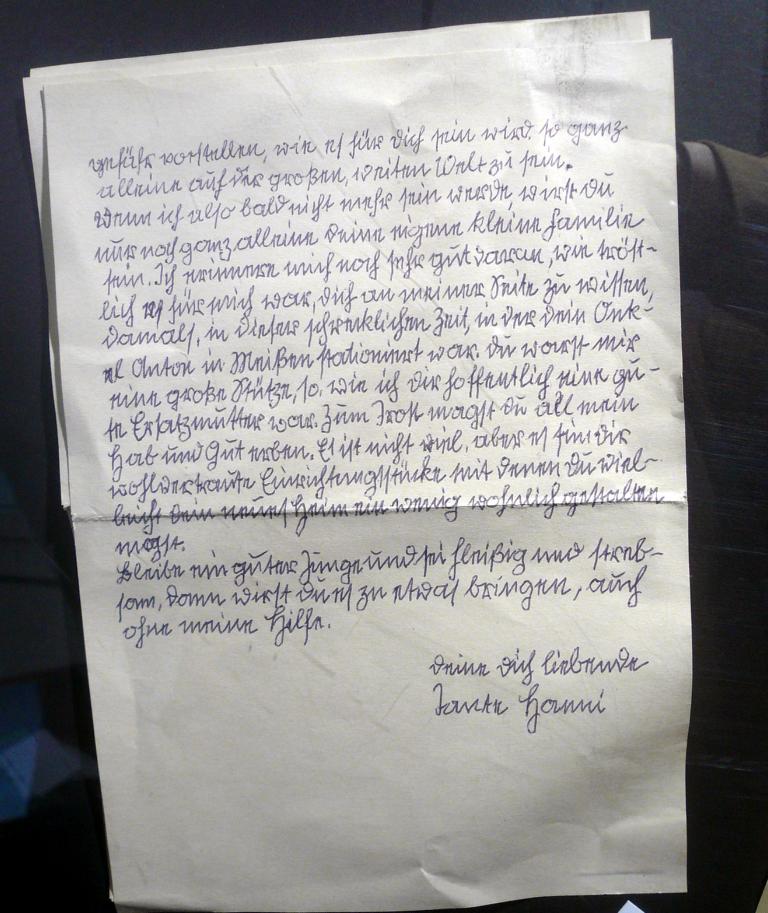 gefähr vorstellen, wie es für dich sein wird so ganz
alleine auf der großen, weiten Welt zu sein.
Wenn ich also bald nicht mehr sein werde, wirst du
nur noch ganz alleine deine eigene kleine Familie
sein. Ich erinnere mich noch sehr gut daran, wie tröst-
lich es für mich war, dich an meiner Seite zu wissen,
damals, in dieser schrecklichen Zeit, in der dein Onk-
el Anton in Meißen stationiert war. du warst mir
eine große Stütze, so, wie ich dir hoffentlich eine gu-
te Ersatzmutter war. Zum Trost magst du all mein
Hab und Gut erben. Es ist nicht viel, aber es sin dir
wohlvertraute Einrichtungsstücke mit denen du viel-
leicht dein neues Heim ein wenig wohnlich gestalten
magst.
Bleibe ein guter Junge und sei fleißig und streb-
sam, dann wirst du es zu etwas bringen, auch
ohne meine Hilfe.
deine dich liebende
Tante Hanni